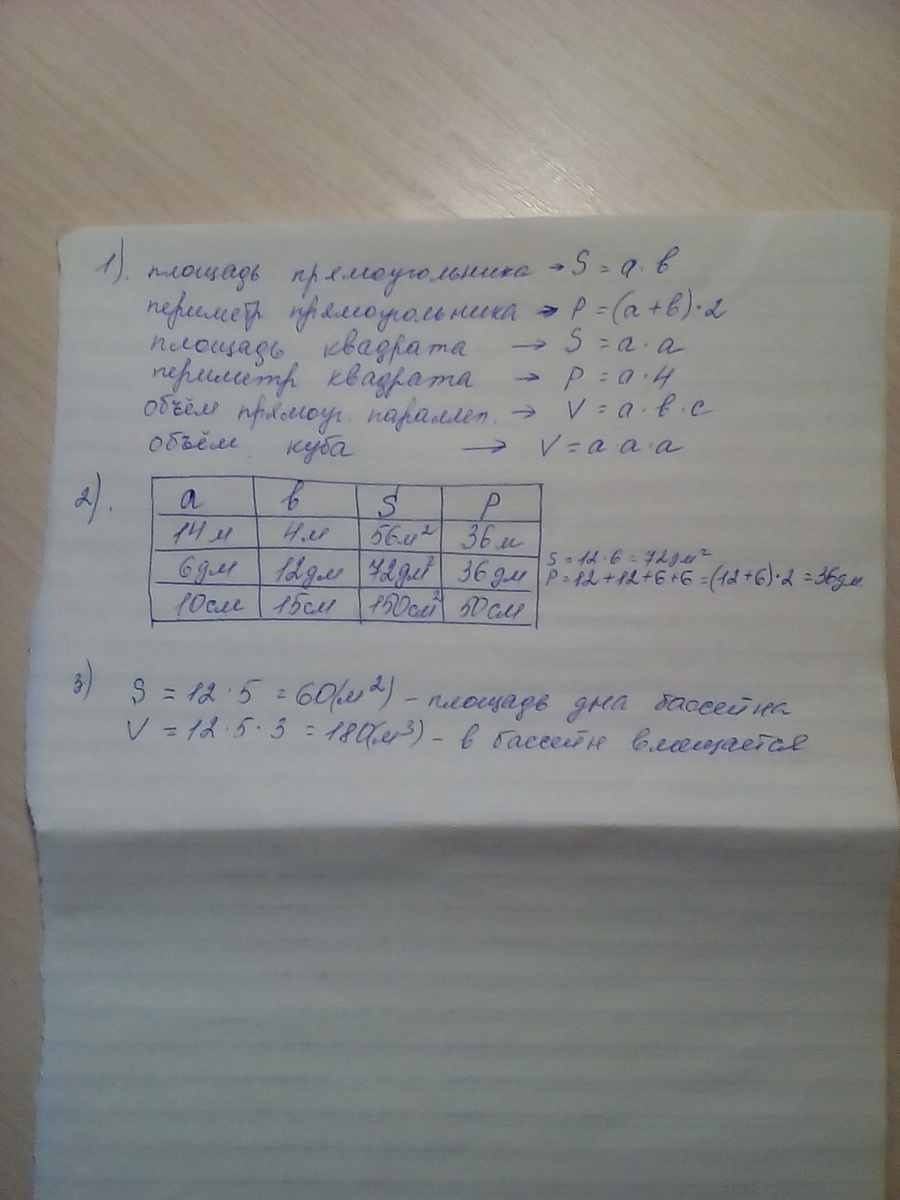 1). площадь прямоугольника → S = a · в
периметр прямоугольника → P = (a + в) · 2
площадь квадрата → S = a · a
периметр квадрата → P = a · 4
объём прямоуг. параллеп. → V = a · в · c
объём куба → V = a · a · a
2).
a в S P
14 м 4 м 56 м² 36 м
6 дм 12 дм 72 дм² 36 дм
S = 12 · 6 = 72 дм²
P = 12 + 12 + 6 + 6 = (12 + 6) · 2 = 36 дм
10 см 15 см 150 см² 50 см
3) S = 12 · 5 = 60 (м²) – площадь дна бассейна
V = 12 · 5 · 3 = 180 (м³) – в бассейн вмещается